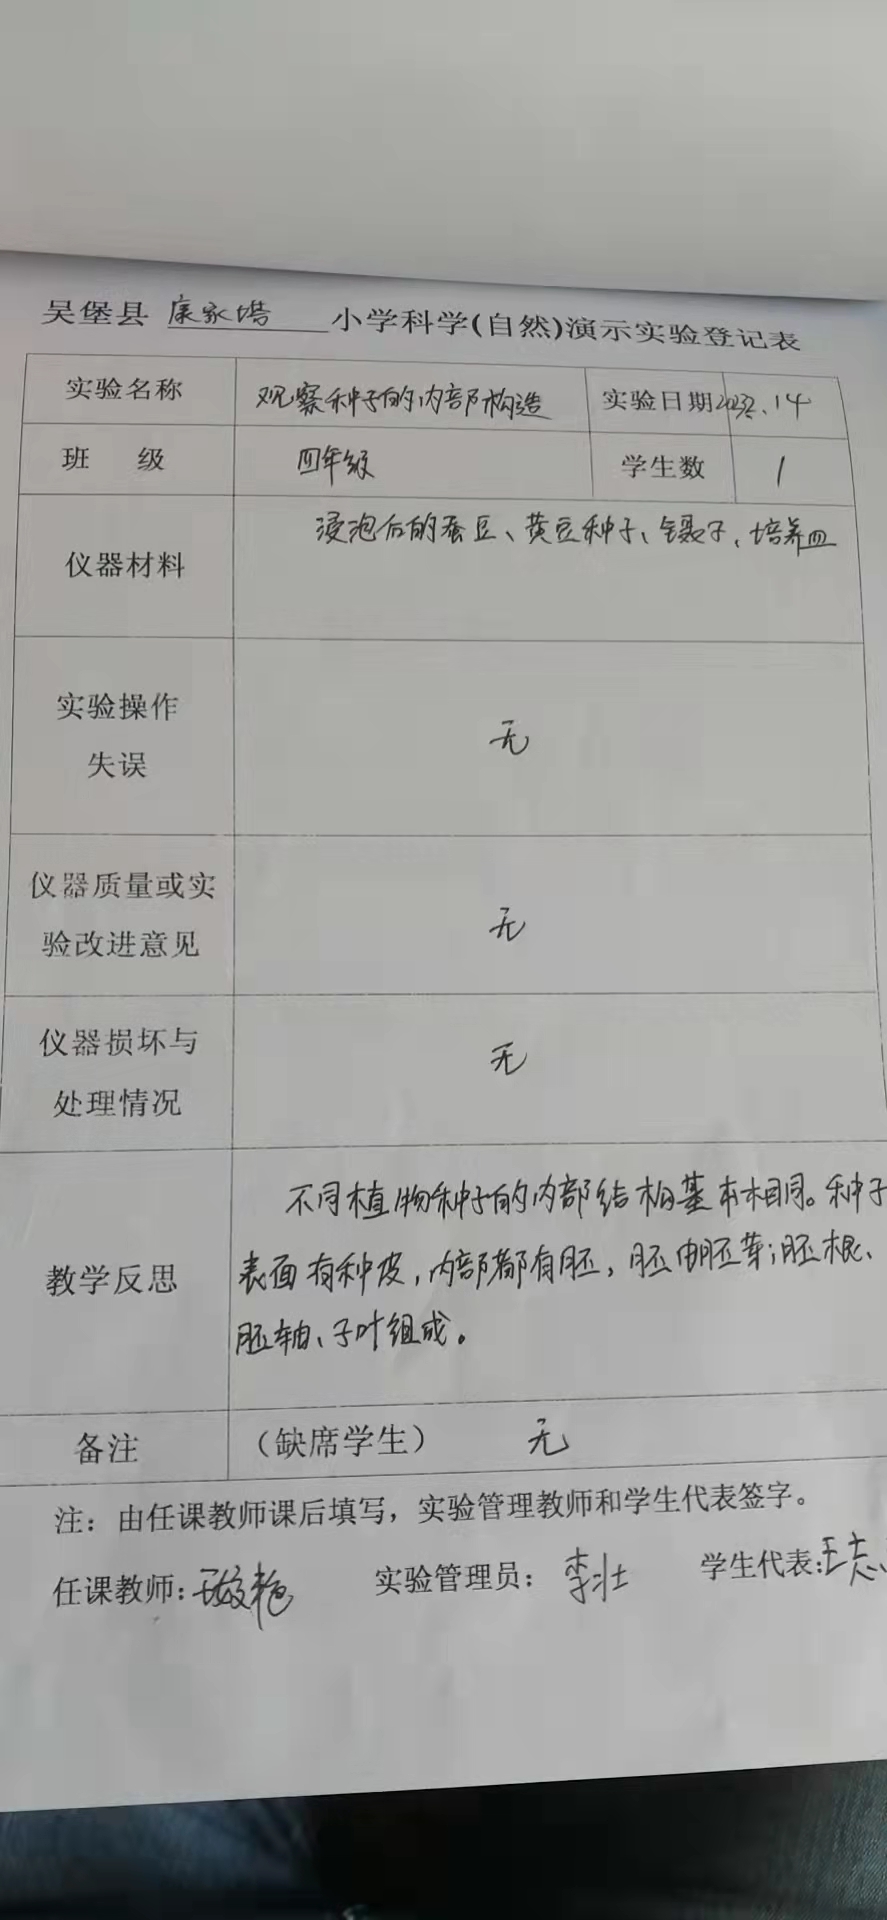 吴堡县 康家塔 小学科学(自然)演示实验登记表
实验名称 观察种子的内部构造 实验日期
班 级 四年级 学生数 1
仪器材料 浸泡后的蚕豆、黄豆种子、镊子、培养皿
实验操作
失误
无
仪器质量或实
验改进意见
无
仪器损坏与
处理情况
无
教学反思
不同植物种子的内部结构基本相同。种子
表面有种皮，内部都有胚，胚由胚芽；胚根、
胚轴、子叶组成。
备注 （缺席学生） 无
注：由任课教师课后填写，实验管理教师和学生代表签字。
任课教师: 实验管理员：李壮 学生代表:王志